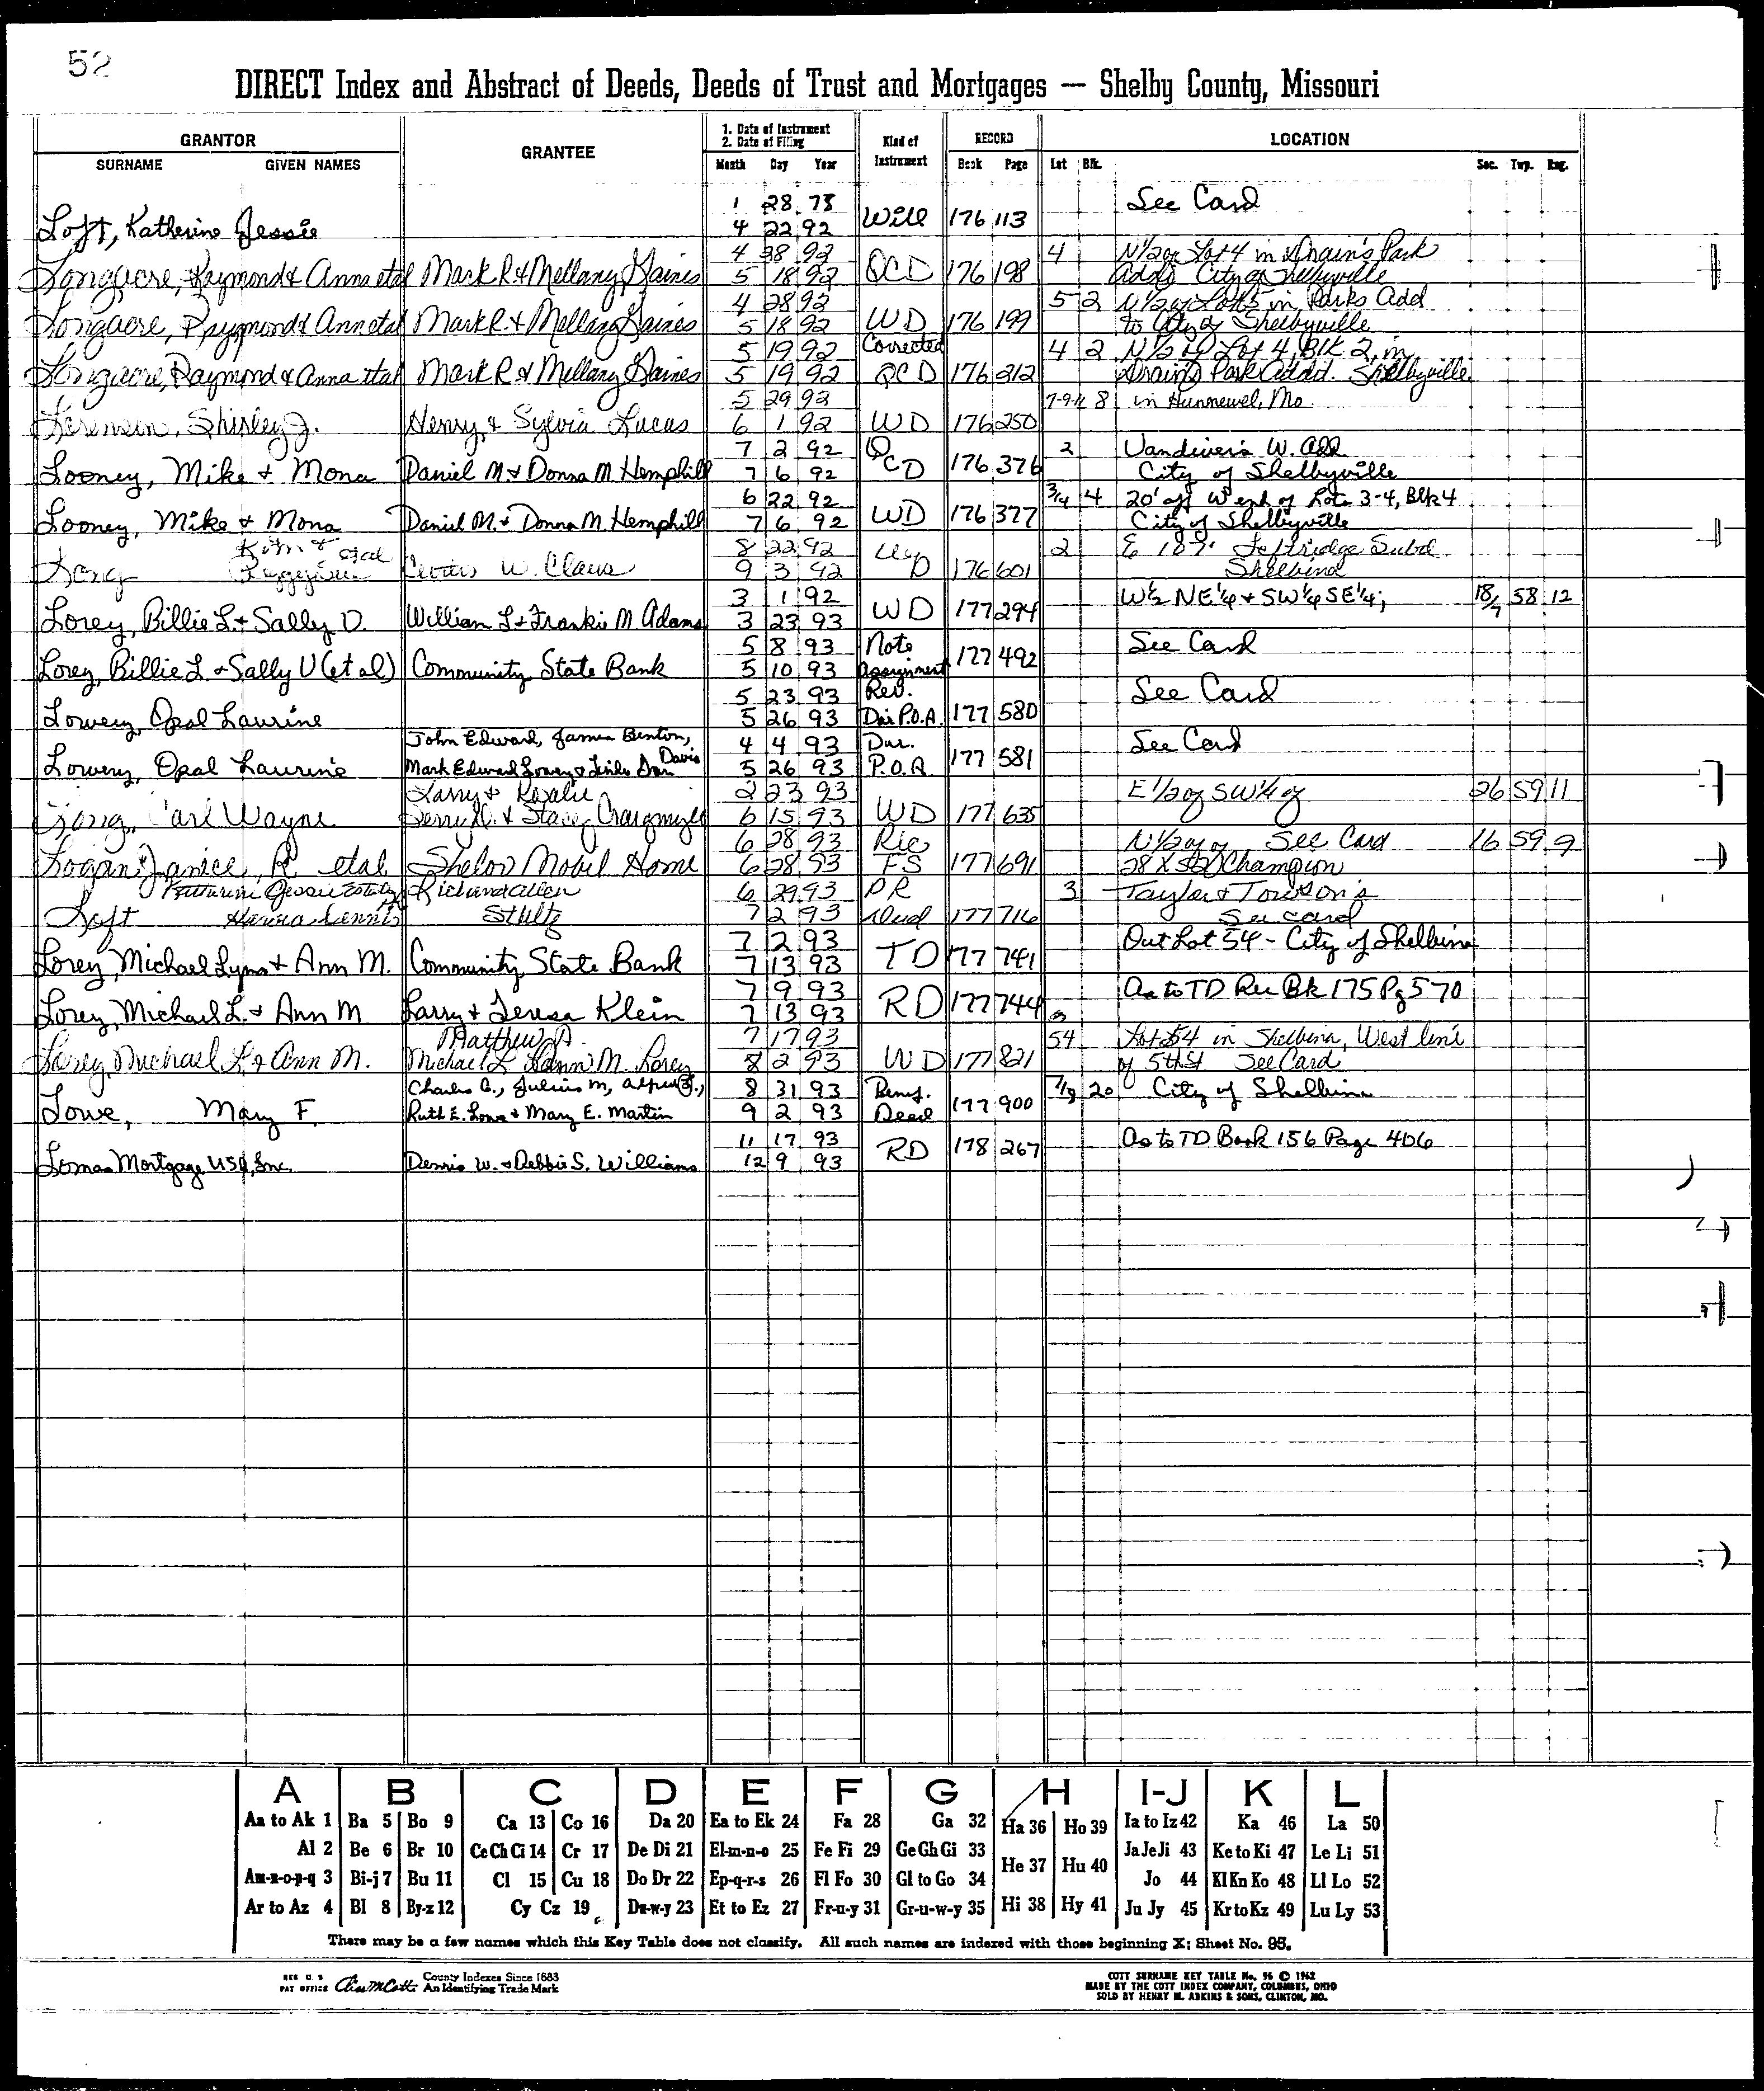 52
DIRECT Index and Abstract of Deeds, Deeds of Trust and Mortgages — Shelby County, Missouri
GRANTOR GRANTEE 1. Date of Instrument 2. Date of Filing Kind of Instrument RECORD LOCATION
SURNAME GIVEN NAMES Month Day Year Book Page Lot Blk. Sec. Twp. Rng.
1 28 78 See Card
Loft, Katherine Jessie 4 22 92 Will 176 113
4 28 92 4 N 1/2 of Lot 4 in Drain's Park
Longacre, Raymond & Anna etal Mark R. & Mellany Gaines 5 18 92 QCD 176 198 Add. City of Shelbyville
4 28 92 5 2 N 1/2 of Lot 5 in Parks Add
Longacre, Raymond & Ann etal Mark R. & Mellany Gaines 5 18 92 WD 176 199 to City of Shelbyville
5 19 92 Corrected 4 2 N 1/2 of Lot 4, Blk 2, in
Longacre, Raymond & Anna etal Mark R & Mellany Gaines 5 19 92 QCD 176 212 Drain's Park Addd. Shelbyville
5 29 92 7-9-11 8 in Hunnewel, Mo.
Shirley J. Henry & Sylvia Lucas 6 1 92 WD 176 250
7 2 92 Q 2 Vandiver's W. Add.
Looney, Mike & Mona Daniel M. & Donna M. Hemphill 7 6 92 CD 176 376 City of Shelbyville
6 22 92 3/4 4 20' off W end of Lots 3-4, Blk 4
Looney, Mike & Mona Daniel M. & Donna M. Hemphill 7 6 92 WD 176 377 City of Shelbyville
Kim & etal 8 22 92 2 E Subd.
Long W. Claus 9 3 92 D 176 601 Shelbina
3 1 92 W½ NE¼ & SW¼ SE¼; 18/7 58 12
Lorey, Billie L. & Sally V. William L. & Frankie M. Adams 3 23 93 WD 177 294
5 8 93 Note See Card
Lorey, Billie L. & Sally V (et al) Community State Bank 5 10 93 Assignment 177 492
5 23 93 Rev. See Card
Lowery, Opal Laurine 5 26 93 Dur P.O.A. 177 580
John Edward, James Benton, 4 4 93 Dur. See Card
Lowery, Opal Laurine Mark Edward Lowery & Linda Davis 5 26 93 P.O.A. 177 581
Larry & Rosalie 2 23 93 E 1/2 of SW 1/4 of 26 59 11
Long, Carl Wayne & Stacey Craigmyle 6 15 93 WD 177 635
6 28 93 N 1/2 of See Card 16 59 9
Logan, Janice R etal Mobil Home 6 28 93 FS 177 691 Champion
Katherine Jessie Estate Richard Allen 6 29 93 PR 3 Taylor & Towson's
Loft Stultz 7 2 93 Deed 177 716 See card
7 2 93 Out Lot 54 - City of Shelbina
Lorey, Michael Lynn & Ann M. Community State Bank 7 13 93 TD 177 741
7 9 93 As to TD Rec Bk 175 Pg 570
Lorey, Michael L. & Ann M Larry & Teresa Klein 7 13 93 RD 177 744
Matthew A. 7 17 93 54 Lot 54 in Shelbina, West line
Lorey, Michael L. & Ann M. Michael L & Ann M. Lorey 8 2 93 WD 177 821 of 5th St See Card
Charles A., Julius M, Alfred J., 8 31 93 Benef. 7/8 20 City of Shelbina
Lowe, Mary F. Ruth E. Lowe & Mary E. Martin 9 2 93 Deed 177 900
11 17 93 As to TD Book 156 Page 406
Lomas Mortgage USA, Inc. Dennis W. & Debbie S. Williams 12 9 93 RD 178 267
A B C D E F G H I-J K L
Aa to Ak 1 Ba 5 Bo 9 Ca 13 Co 16 Da 20 Ea to Ek 24 Fa 28 Ga 32 Ha 36 Ho 39 Ia to Iz 42 Ka 46 La 50
Al 2 Be 6 Br 10 Ce Ch Ci 14 Cr 17 De Di 21 El-m-n-o 25 Fe Fi 29 Ge Gh Gi 33 He 37 Hu 40 Ja Je Ji 43 Ke to Ki 47 Le Li 51
Am-n-o-p-q 3 Bi-j 7 Bu 11 Cl 15 Cu 18 Do Dr 22 Ep-q-r-s 26 Fl Fo 30 Gl to Go 34 Jo 44 Kl Kn Ko 48 Ll Lo 52
Ar to Az 4 Bl 8 By-z 12 Cy Cz 19 Du-w-y 23 Et to Ez 27 Fr-u-y 31 Gr-u-w-y 35 Hi 38 Hy 41 Ju Jy 45 Kr to Kz 49 Lu Ly 53
There may be a few names which this Key Table does not classify. All such names are indexed with those beginning X; Sheet No. 95.
REG U S PAT OFFICE County Indexes Since 1883 An Identifying Trade Mark
COTT SURNAME KEY TABLE No. 96 © 1962
MADE BY THE COTT INDEX COMPANY, COLUMBUS, OHIO
SOLD BY HENRY M. ADKINS & SONS, CLINTON, MO.